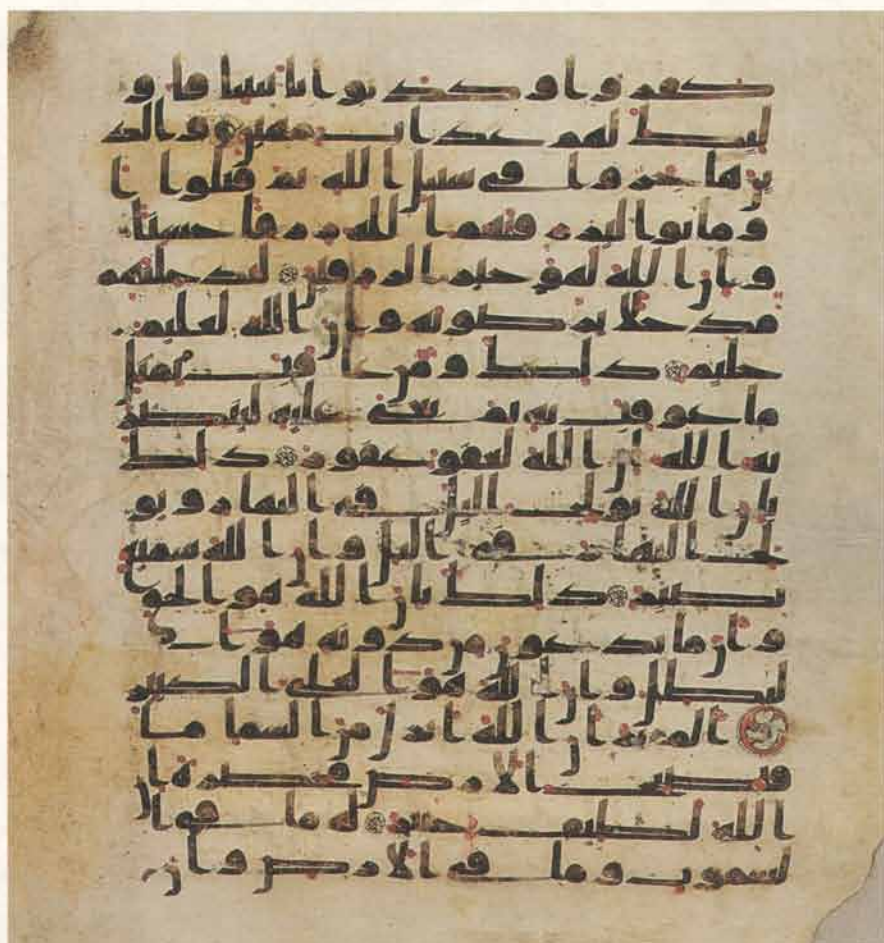 كفروا وكذبوا بايتنا فاو
ليك لهم عذاب مهين والذ
ين هاجروا في سبيل الله ثم قتلوا ا
و ماتوا ليرزقنهم الله رزقا حسنا
وان الله لهو خير الرزقين ليدخلنهم
مدخلا يرضونه وان الله لعليم
حليم ذلك ومن عاقب بمثل
ما عوقب به ثم بغي عليه لينصر
نه الله ان الله لعفو غفور ذلك
بان الله يولج اليل في النهار ويو
لج النهار في اليل وان الله سميع
بصير ذلك بان الله هو الحق
وان ما يدعون من دونه هو ا
لبطل وان الله هو العلي الكبير
الم تر ان الله انزل من السما ما
فتصبح الارض مخضرة ان
الله لطيف خبير له ما في ا
لسموت وما في الارض وان